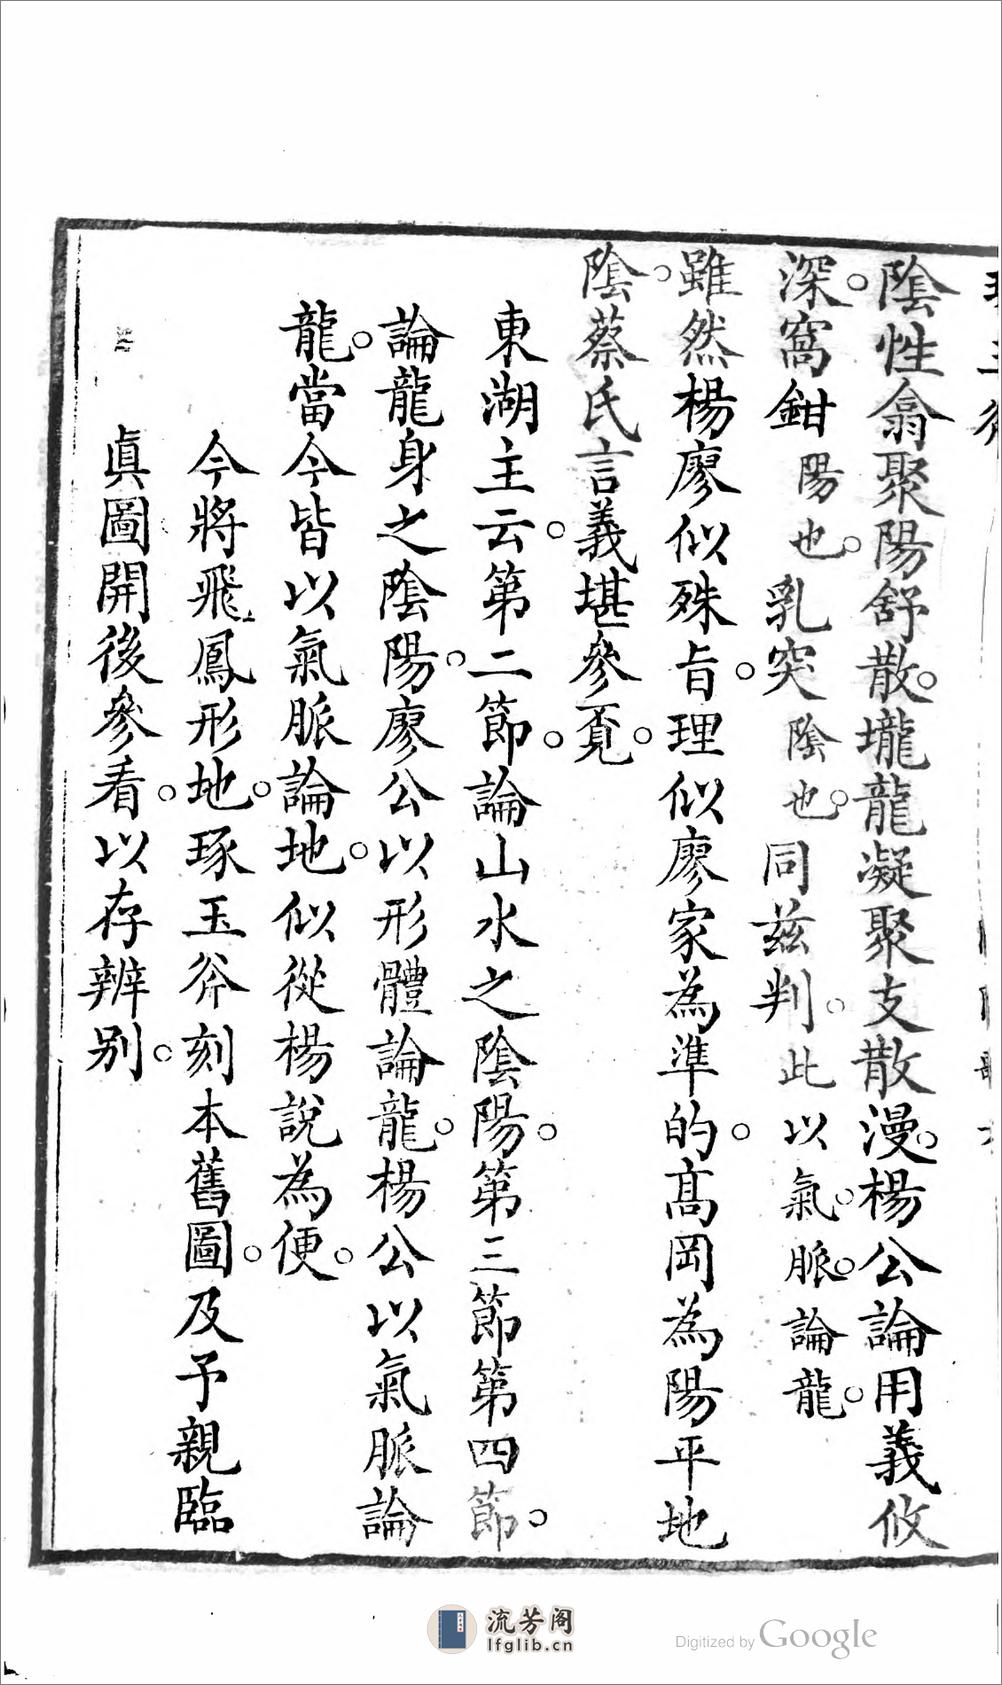 陰性翕聚陽舒散。壠龍凝聚支散漫。楊公論用義攸
深。窩鉗陽也。乳突陰也。同茲判。此以氣。脈。論龍。
雖然楊廖似殊旨。理似廖家為準的。高岡為陽平地
陰。蔡氏言義堪參覔。
東湖主云。第二節。論山水之陰陽。第三節第四節。
論龍身之陰陽。廖公以形體論龍。楊公以氣脈論
龍。當今皆以氣脈論地。似從楊說為便。
今將飛鳳形地。琢玉斧刻本舊圖。及予親臨
真圖開後參看。以存辨別。
流芳阁
lfglib.cn
Digitized by Google